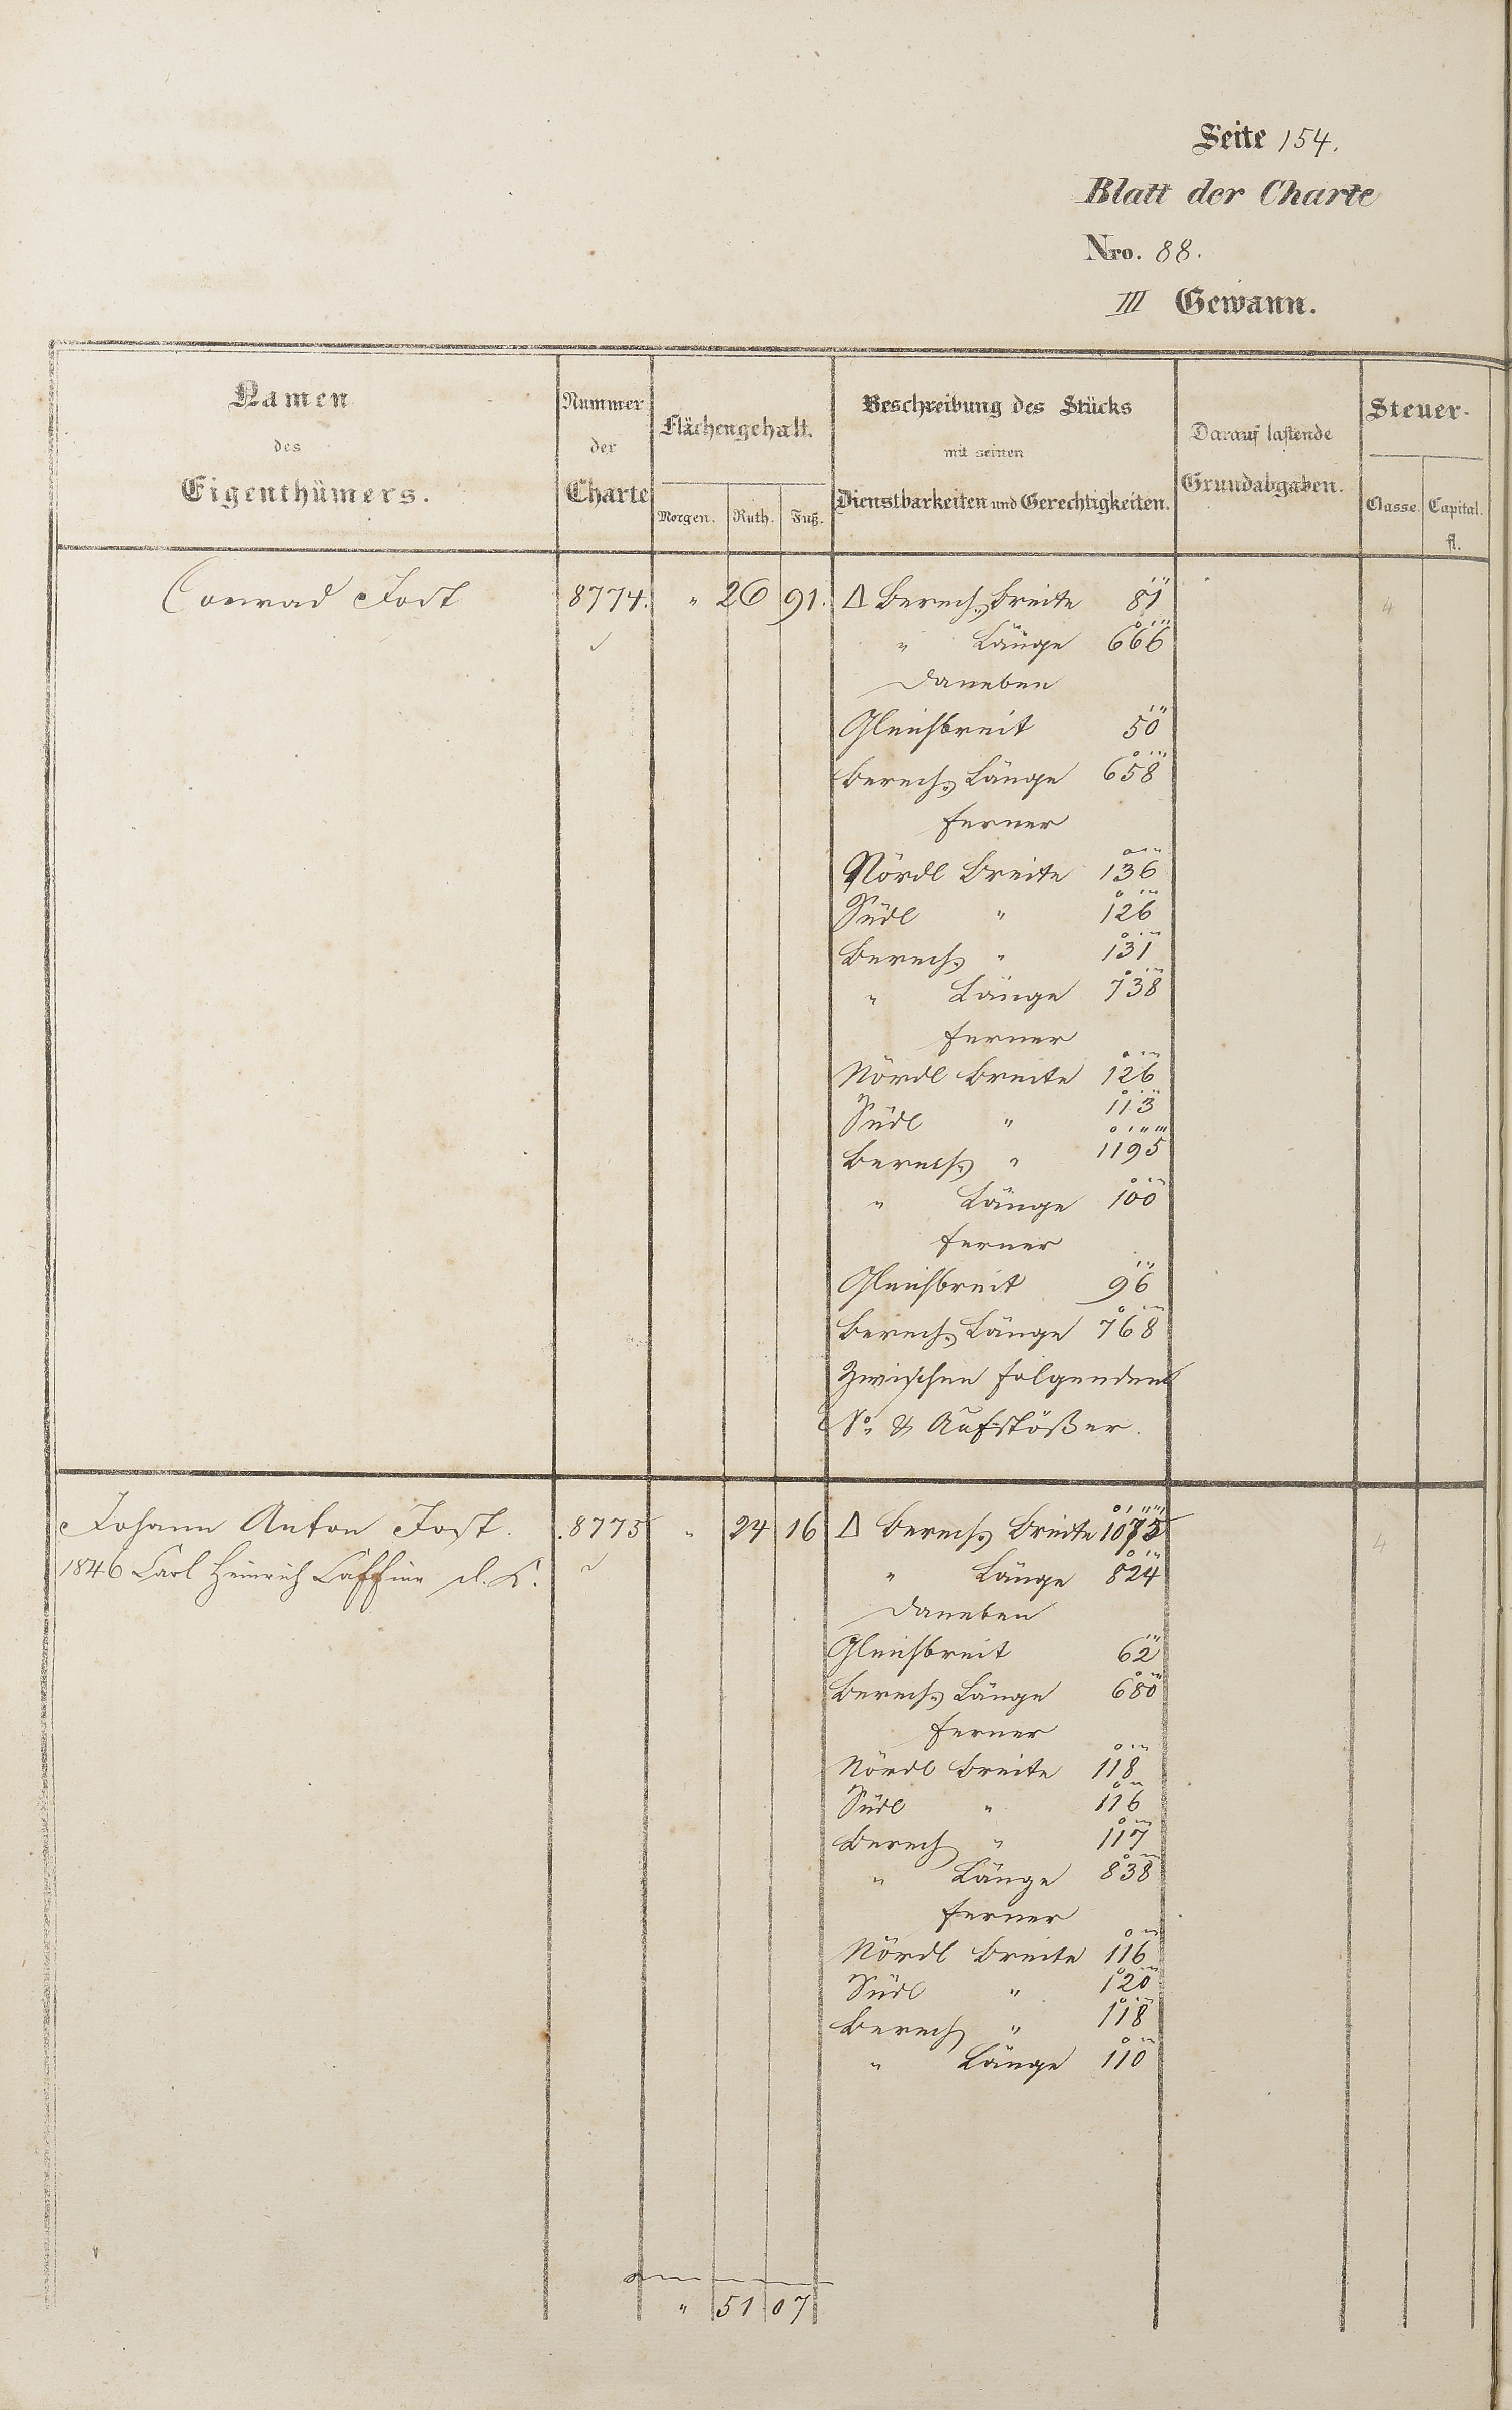 Seite 154.
Blatt der Charte
Nro. 88.
III Gewann.
Namen des Eigenthümers.
Nummer der Charte
Flächengehalt.
Morgen. Ruth. Fuß.
Beschreibung des Stücks
mit seinen
Dienstbarkeiten und Gerechtigkeiten.
Darauf lastende
Grundabgaben.
Steuer-
Classe. Capital.
fl.
Conrad Jost 8774. " 26 91. Δ Berech. Breite 81 4
" Länge 666
Daneben
Gleichbreit 50
Berech. Länge 658
ferner
Nördl Breite 136
Südl " 126
Berech. " 131
" Länge 738
ferner
Nördl Breite 126
Südl " 113
Berech. " 1195
" Länge 100
ferner
Gleichbreit 96
Berech. Länge 768
Zwischen folgendem
No. & Aufstößer.
Johann Anton Jost. 8775 " 24 16 Δ Berech. Breite 1075 4
1846 Carl Heinrich Caffine d. K.
" Länge 824
Daneben
Gleichbreit 62
Berech. Länge 680
ferner
Nördl Breite 118
Südl " 116
Berech " 117
" Länge 838
ferner
Nördl Breite 116
Südl " 120
Berech " 118
" Länge 110
" 51 07